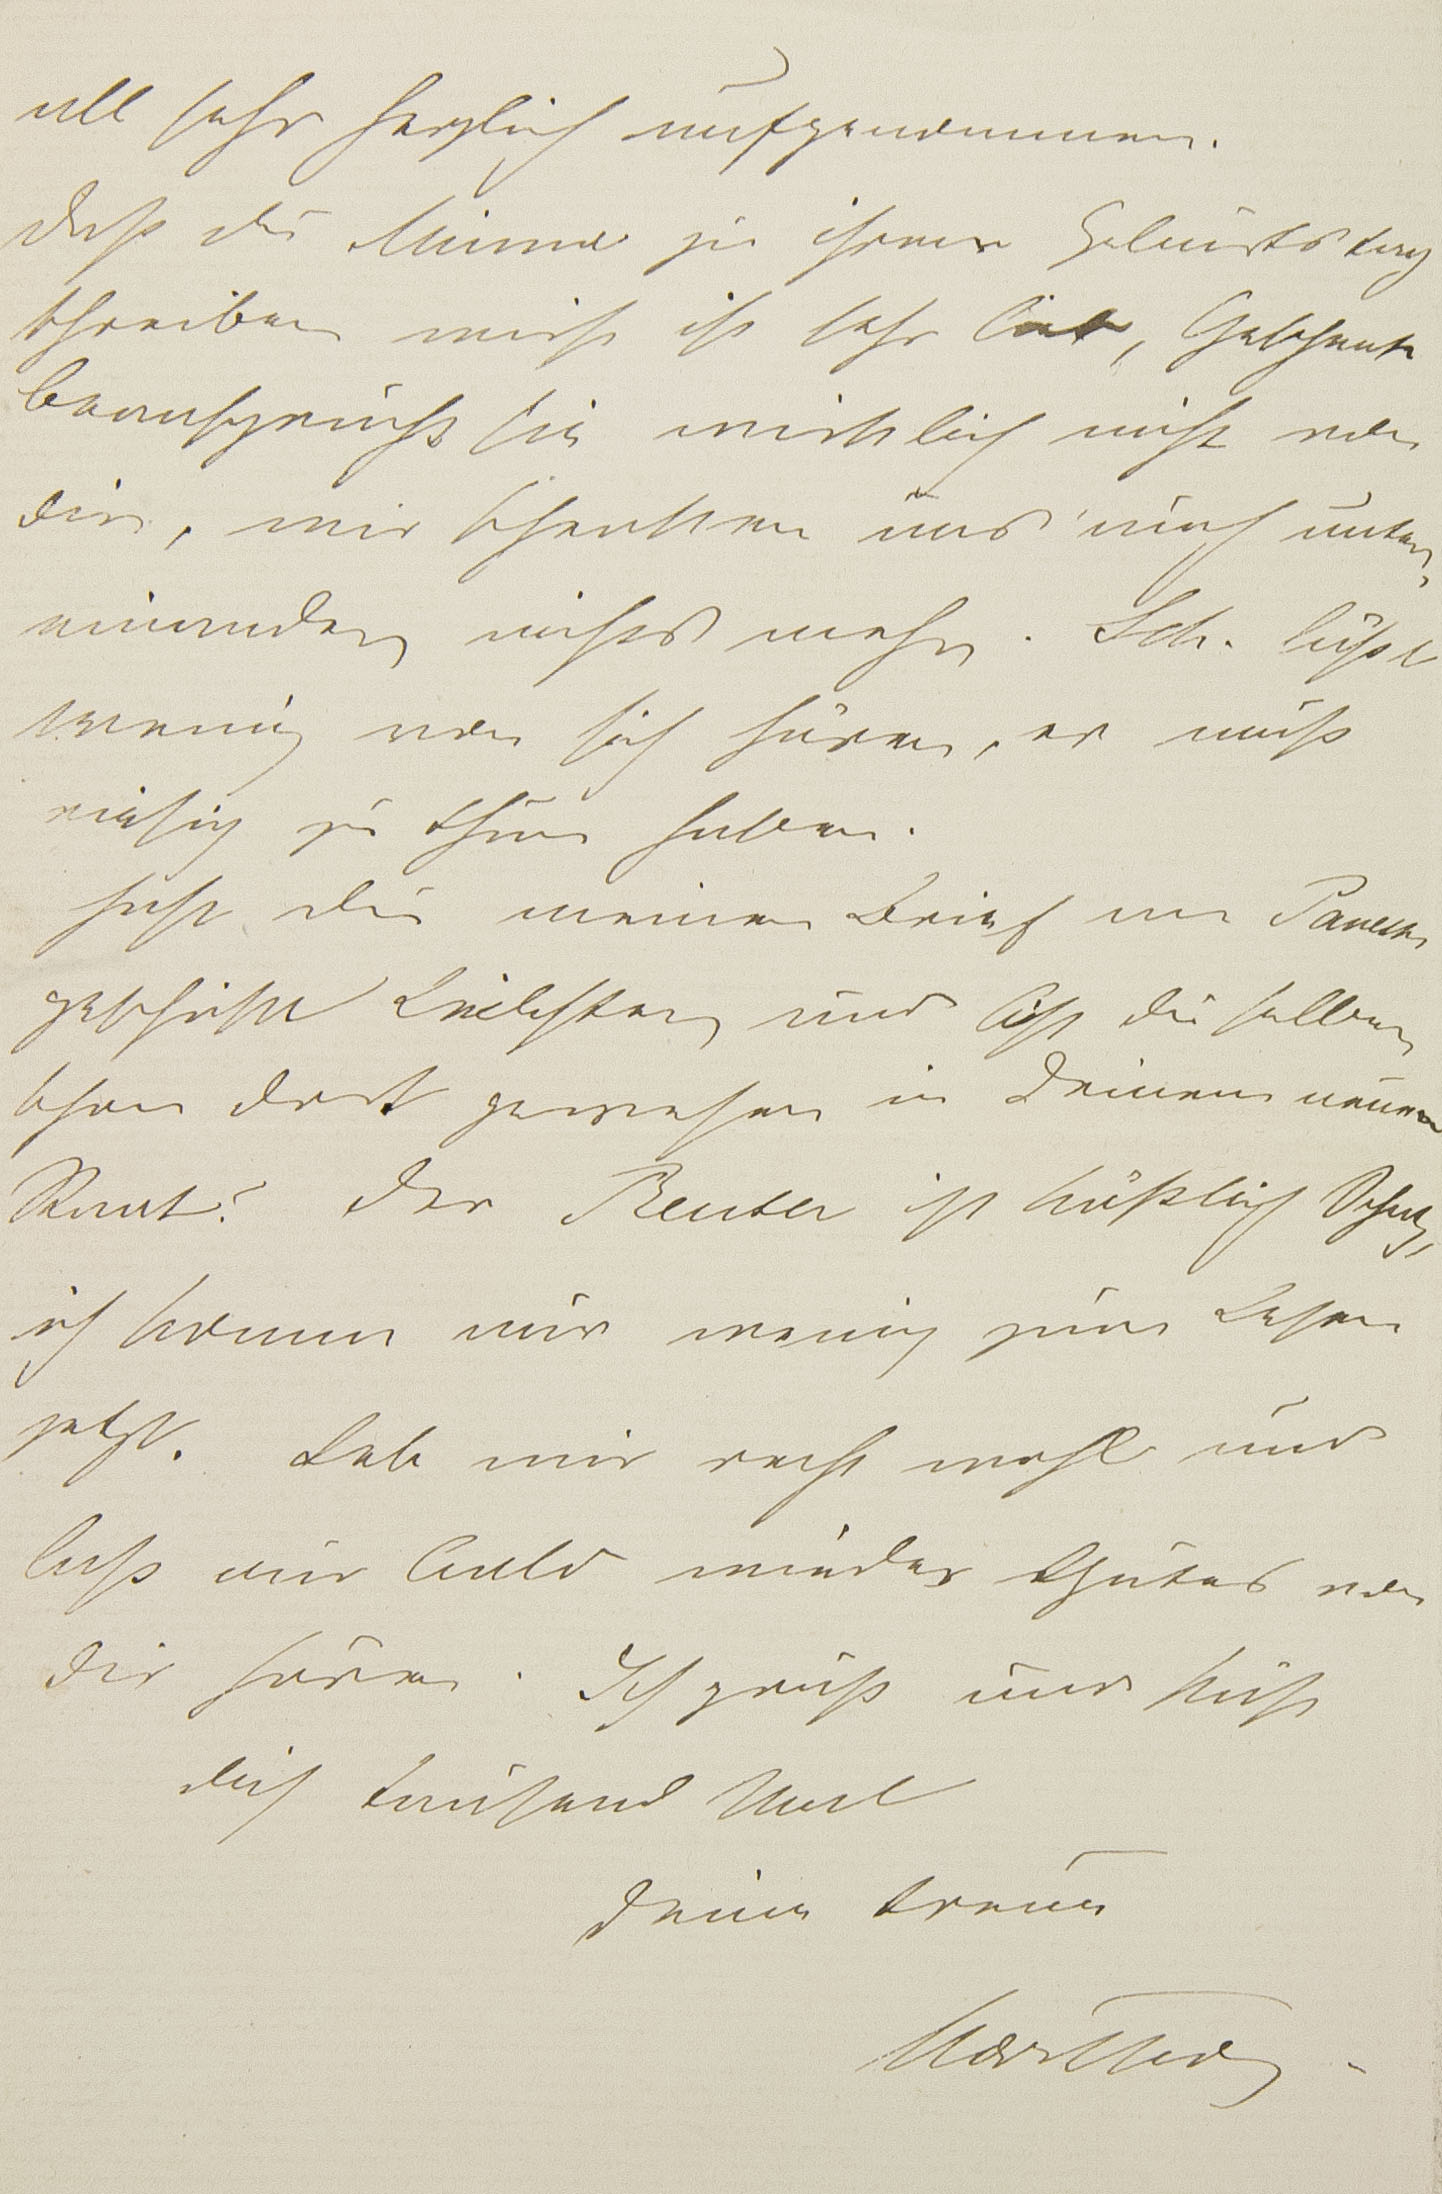 all sehr herzlich aufgenommen.
Daß du Minna zu ihrem Geburtstag
schreiben wirst ist sehr lieb, Geschenk
beansprucht sie wirklich nicht von
dir, wir schenken uns auch unter
einander nichts mehr. Sch. läßt
wenig von sich hören, er muß
riesig zu thun haben.
Hast du meinen Brief an Paneth
geschickt Liebster, und bist du selber
schon dort gewesen in Deinem neuen
Rock? Der Reuter ist köstlich Schatz,
ich komme nur wenig zum Lesen
jetzt. Leb mir recht wohl und
laß mir bald wieder Gutes von
dir hören. Ich grüß und küß
dich tausend Mal
Deine treue